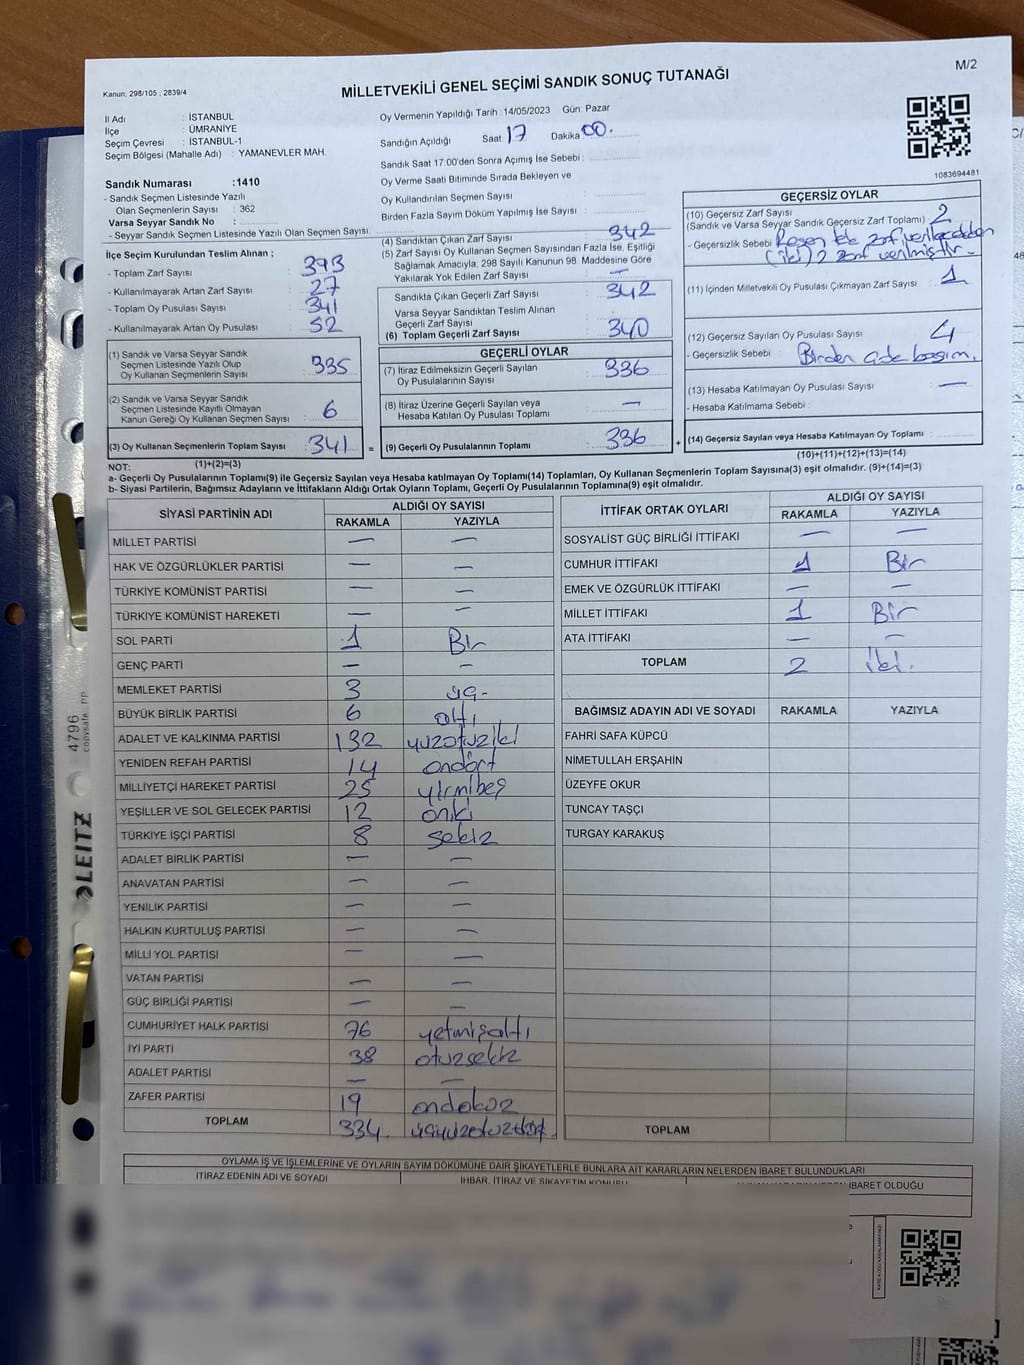 M/2
Kanun: 298/105 , 2839/4
MİLLETVEKİLİ GENEL SEÇİMİ SANDIK SONUÇ TUTANAĞI
İl Adı : İSTANBUL
İlçe : ÜMRANİYE
Seçim Çevresi : İSTANBUL-1
Seçim Bölgesi (Mahalle Adı) : YAMANEVLER MAH.
Sandık Numarası :1410
- Sandık Seçmen Listesinde Yazılı
Olan Seçmenlerin Sayısı : 362
Varsa Seyyar Sandık No :
- Seyyar Sandık Seçmen Listesinde Yazılı Olan Seçmen Sayısı:
Oy Vermenin Yapıldığı Tarih : 14/05/2023 Gün: Pazar
Sandığın Açıldığı Saat: 17 Dakika 00.
Sandık Saat 17:00'den Sonra Açımış İse Sebebi :
Oy Verme Saati Bitiminde Sırada Bekleyen ve
Oy Kullandırılan Seçmen Sayısı :
Birden Fazla Sayım Döküm Yapılmış İse Sayısı :
1083694481
İlçe Seçim Kurulundan Teslim Alınan ;
- Toplam Zarf Sayısı : 393
- Kullanılmayarak Artan Zarf Sayısı : 27
- Toplam Oy Pusulası : 341
- Kullanılmayarak Artan Oy Pusulası : 52
(1) Sandık ve Varsa Seyyar Sandık
Seçmen Listesinde Yazılı Olup
Oy Kullanan Seçmenlerin Sayısı : 335
(2) Sandık ve Varsa Seyyar Sandık
Seçmen Listesinde Kayıtlı Olmayan
Kanun Gereği Oy Kullanan Seçmen Sayısı : 6
(3) Oy Kullanan Seçmenlerin Toplam Sayısı : 341 =
(1)+(2)=(3)
(4) Sandıktan Çıkan Zarf Sayısı : 342
(5) Zarf Sayısı Oy Kullanan Seçmen Sayısından Fazla İse, Eşitliği
Sağlamak Amacıyla, 298 Sayılı Kanunun 98. Maddesine Göre
Yakılarak Yok Edilen Zarf Sayısı : —
Sandıkta Çıkan Geçerli Zarf Sayısı : 342
Varsa Seyyar Sandıktan Teslim Alınan
Geçerli Zarf Sayısı :
(6) Toplam Geçerli Zarf Sayısı : 340
GEÇERLİ OYLAR
(7) İtiraz Edilmeksizin Geçerli Sayılan
Oy Pusulalarının Sayısı : 336
(8) İtiraz Üzerine Geçerli Sayılan veya
Hesaba Katılan Oy Pusulası Toplamı : —
(9) Geçerli Oy Pusulalarının Toplamı : 336 +
GEÇERSİZ OYLAR
(10) Geçersiz Zarf Sayısı
(Sandık ve Varsa Seyyar Sandık Geçersiz Zarf Toplamı) : 2
- Geçersizlik Sebebi
(iki) 2 zarf verilmiştir.
(11) İçinden Milletvekili Oy Pusulası Çıkmayan Zarf Sayısı : 1
(12) Geçersiz Sayılan Oy Pusulası Sayısı : 4
- Geçersizlik Sebebi : Birden
(13) Hesaba Katılmayan Oy Pusulası Sayısı : —
- Hesaba Katılmama Sebebi :
(14) Geçersiz Sayılan veya Hesaba Katılmayan Oy Toplamı :
(10)+(11)+(12)+(13)=(14)
NOT:
a- Geçerli Oy Pusulasının Toplamı(9) ile Geçersiz Sayılan veya Hesaba katılmayan Oy Toplamı(14) Toplamları, Oy Kullanan Seçmenlerin Toplam Sayısına(3) eşit olmalıdır. (9)+(14)=(3)
b- Siyasi Partilerin, Bağımsız Adayların ve İttifakların Aldığı Ortak Oyların Toplamı, Geçerli Oy Pusulalarının Toplamına(9) eşit olmalıdır.
SİYASİ PARTİNİN ADI ALDIĞI OY SAYISI
RAKAMLA YAZIYLA
MİLLET PARTİSİ — —
HAK VE ÖZGÜRLÜKLER PARTİSİ — —
TÜRKİYE KOMÜNİST PARTİSİ — —
TÜRKİYE KOMÜNİST HAREKETİ — —
SOL PARTİ 1 Bir
GENÇ PARTİ — —
MEMLEKET PARTİSİ 3 üç-
BÜYÜK BİRLİK PARTİSİ 6 altı
ADALET VE KALKINMA PARTİSİ 132 yüzotuziki
YENİDEN REFAH PARTİSİ 14 ondört
MİLLİYETÇİ HAREKET PARTİSİ 25 yirmibeş
YEŞİLLER VE SOL GELECEK PARTİSİ 12 oniki
TÜRKİYE İŞÇİ PARTİSİ 8 sekiz
ADALET BİRLİK PARTİSİ — —
ANAVATAN PARTİSİ — —
YENİLİK PARTİSİ — —
HALKIN KURTULUŞ PARTİSİ — —
MİLLİ YOL PARTİSİ — —
VATAN PARTİSİ — —
GÜÇ BİRLİĞİ PARTİSİ — —
CUMHURİYET HALK PARTİSİ 76 yetmişaltı
İYİ PARTİ 38 otuzsekiz
ADALET PARTİSİ — —
ZAFER PARTİSİ 19 ondokuz
TOPLAM 334. üçyüzotuzdört
İTTİFAK ORTAK OYLARI ALDIĞI OY SAYISI
RAKAMLA YAZIYLA
SOSYALİST GÜÇ BİRLİĞİ İTTİFAKI — —
CUMHUR İTTİFAKI 1 Bir
EMEK VE ÖZGÜRLÜK İTTİFAKI — —
MİLLET İTTİFAKI 1 Bir
ATA İTTİFAKI — —
TOPLAM 2 iki.
BAĞIMSIZ ADAYIN ADI VE SOYADI RAKAMLA YAZIYLA
FAHRİ SAFA KÜPCÜ
NİMETULLAH ERŞAHİN
ÜZEYFE OKUR
TUNCAY TAŞÇI
TURGAY KARAKUŞ
TOPLAM
OYLAMA İŞ VE İŞLEMLERİNE VE OYLARIN SAYIM DÖKÜMÜNE DAİR ŞİKAYETLERLE BUNLARA AİT KARARLARIN NELERDEN İBARET BULUNDUKLARI
İTİRAZ EDENİN ADI VE SOYADI İHBAR, İTİRAZ VE ŞİKAYETİN KONUSU İBARET OLDUĞU
4796
copysafe PP
LEITZ